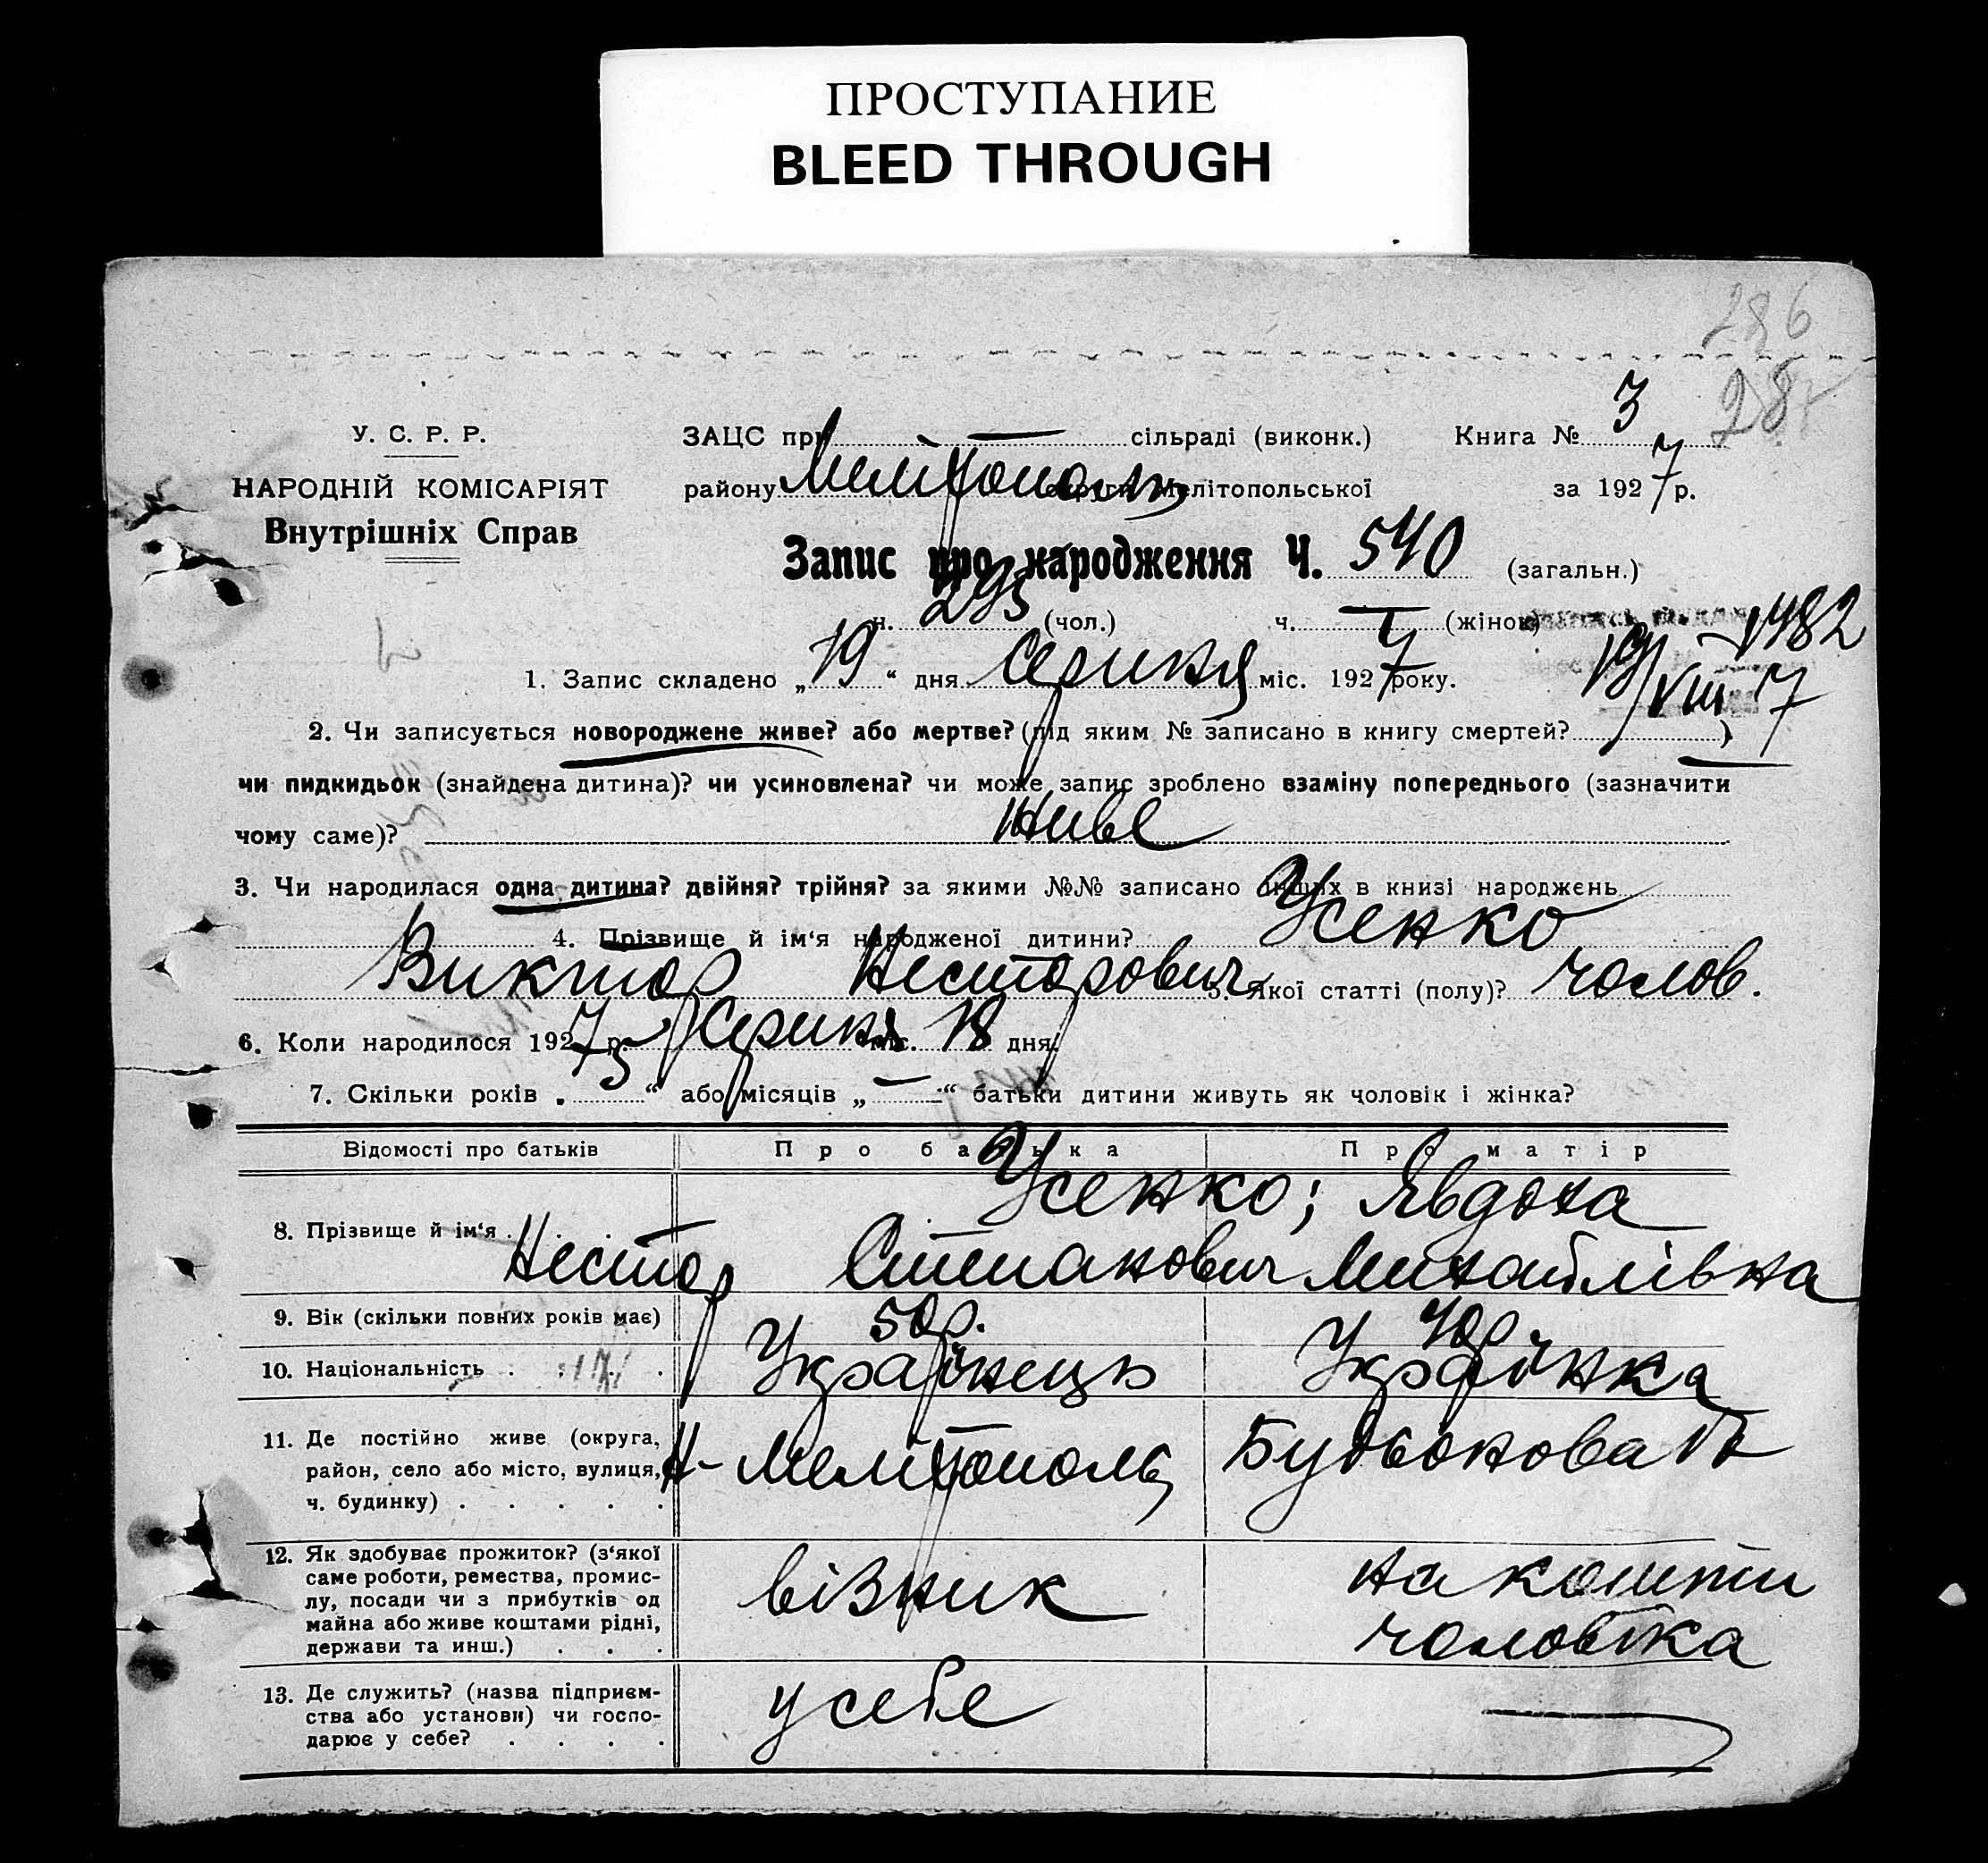 ПРОСТУПАНИЕ
BLEED THROUGH
286
28
У. С. Р. Р.
НАРОДНІЙ КОМІСАРІЯТ
Внутрішніх Справ
ЗАЦС при — сільраді (виконк.) Книга № 3
району Мелітополь округи Мелітопольської за 1927 р.
Запис про народження Ч. 540 (загальн.)
ч. 295 (чол.) ч. — (жінок)
1482
19/VIII 7
1. Запис складено „19“ дня Серпня міс. 1927 року.
2. Чи записується новороджене живе? або мертве? (під яким № записано в книгу смертей? )
чи пидкидьок (знайдена дитина)? чи усиновлена? чи може запис зроблено взаміну попереднього (зазначити
чому саме)? живе
3. Чи народилася одна дитина? двійня? трійня? за якими №№ записано инших в книзі народжень
4. Прізвище й ім‘я народженої дитини? Усенко
Виктор Несторович 5. Якої статті (полу)? чолов.
6. Коли народилося 1927 р. Серпня міс. 18 дня.
7. Скільки років „5“ або місяців „—“ батьки дитини живуть як чоловік і жінка?
Відомості про батьків Про батька Про матір
8. Прізвище й ім‘я . Усенко; Явдоха
Нестор Степанович Михайлівна
9. Вік (скільки повних років має) 50 р. 40 р.
10. Національність . Українець Українка
11. Де постійно живе (округа,
район, село або місто, вулиця,
ч. будинку) . Н-Мелітополь
12. Як здобуває прожиток? (з‘якої
саме роботи, ремества, промис-
лу, посади чи з прибутків од
майна або живе коштами рідні,
держави та инш.) . візник на кошти
чоловіка
13. Де служить? (назва підприєм-
ства або установи) чи госпо-
дарює у себе? . у себе —